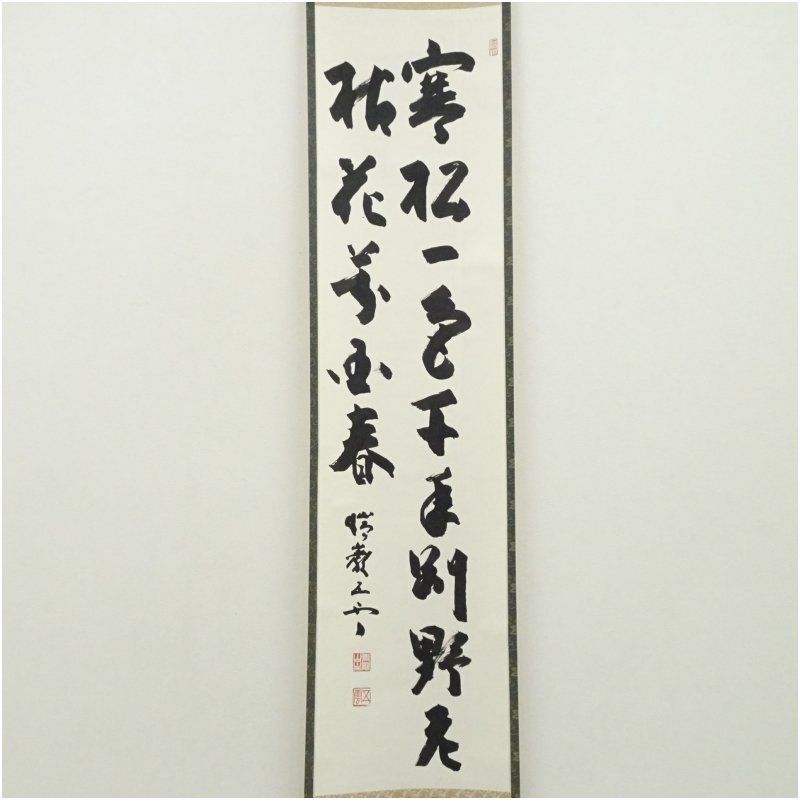 寒松一色千年別野老
拈花萬国春
五雲